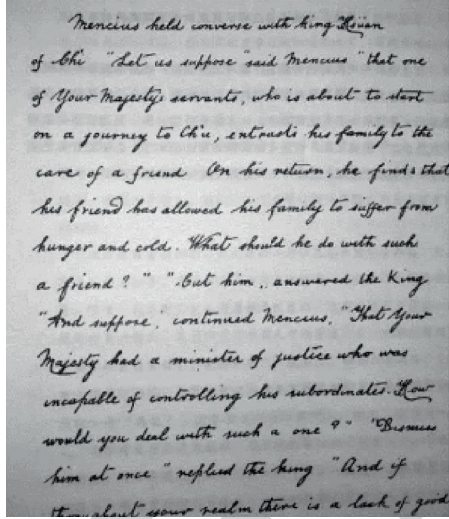 Mencius held converse with king Hsüan
of Chi "Let us suppose" said Mencius "that one
of Your Majestys servants, who is about to start
on a journey to Ch'u, entrusts his family to the
care of a friend On his return, he finds that
his friend has allowed his family to suffer from
hunger and cold. What should he do with such
a friend?" "Cut him, answered the King
"And suppose, continued Mencius, "That Your
Majesty had a minister of justice who was
incapable of controlling his subordinates. How
would you deal with such a one?" "Dismiss
him at once" replied the king "And if
throughout your realm there is a lack of good